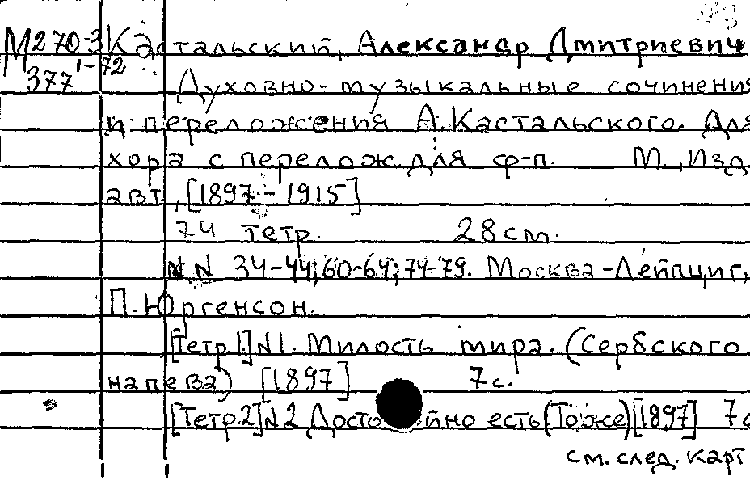 М270-3 Кастальский, Александр Дмитриевич
377 1-72
Духовно-музыкальные сочинения
и переложения А.Кастальского. Для
хора с перелож.для ф-п. М., Изд.
авт., [1897-1915]
74 тетр. 28см.
N.N 34-44;60-64;74-79. Москва-Лейпциг,
П.Юргенсон.
[Тетр1.]N1. Милость мира. (Сербского
напева) [1897] 7с.
[Тетр.2]N2 Достойно есть(Тоже)[1897] 7с
см.след. карт